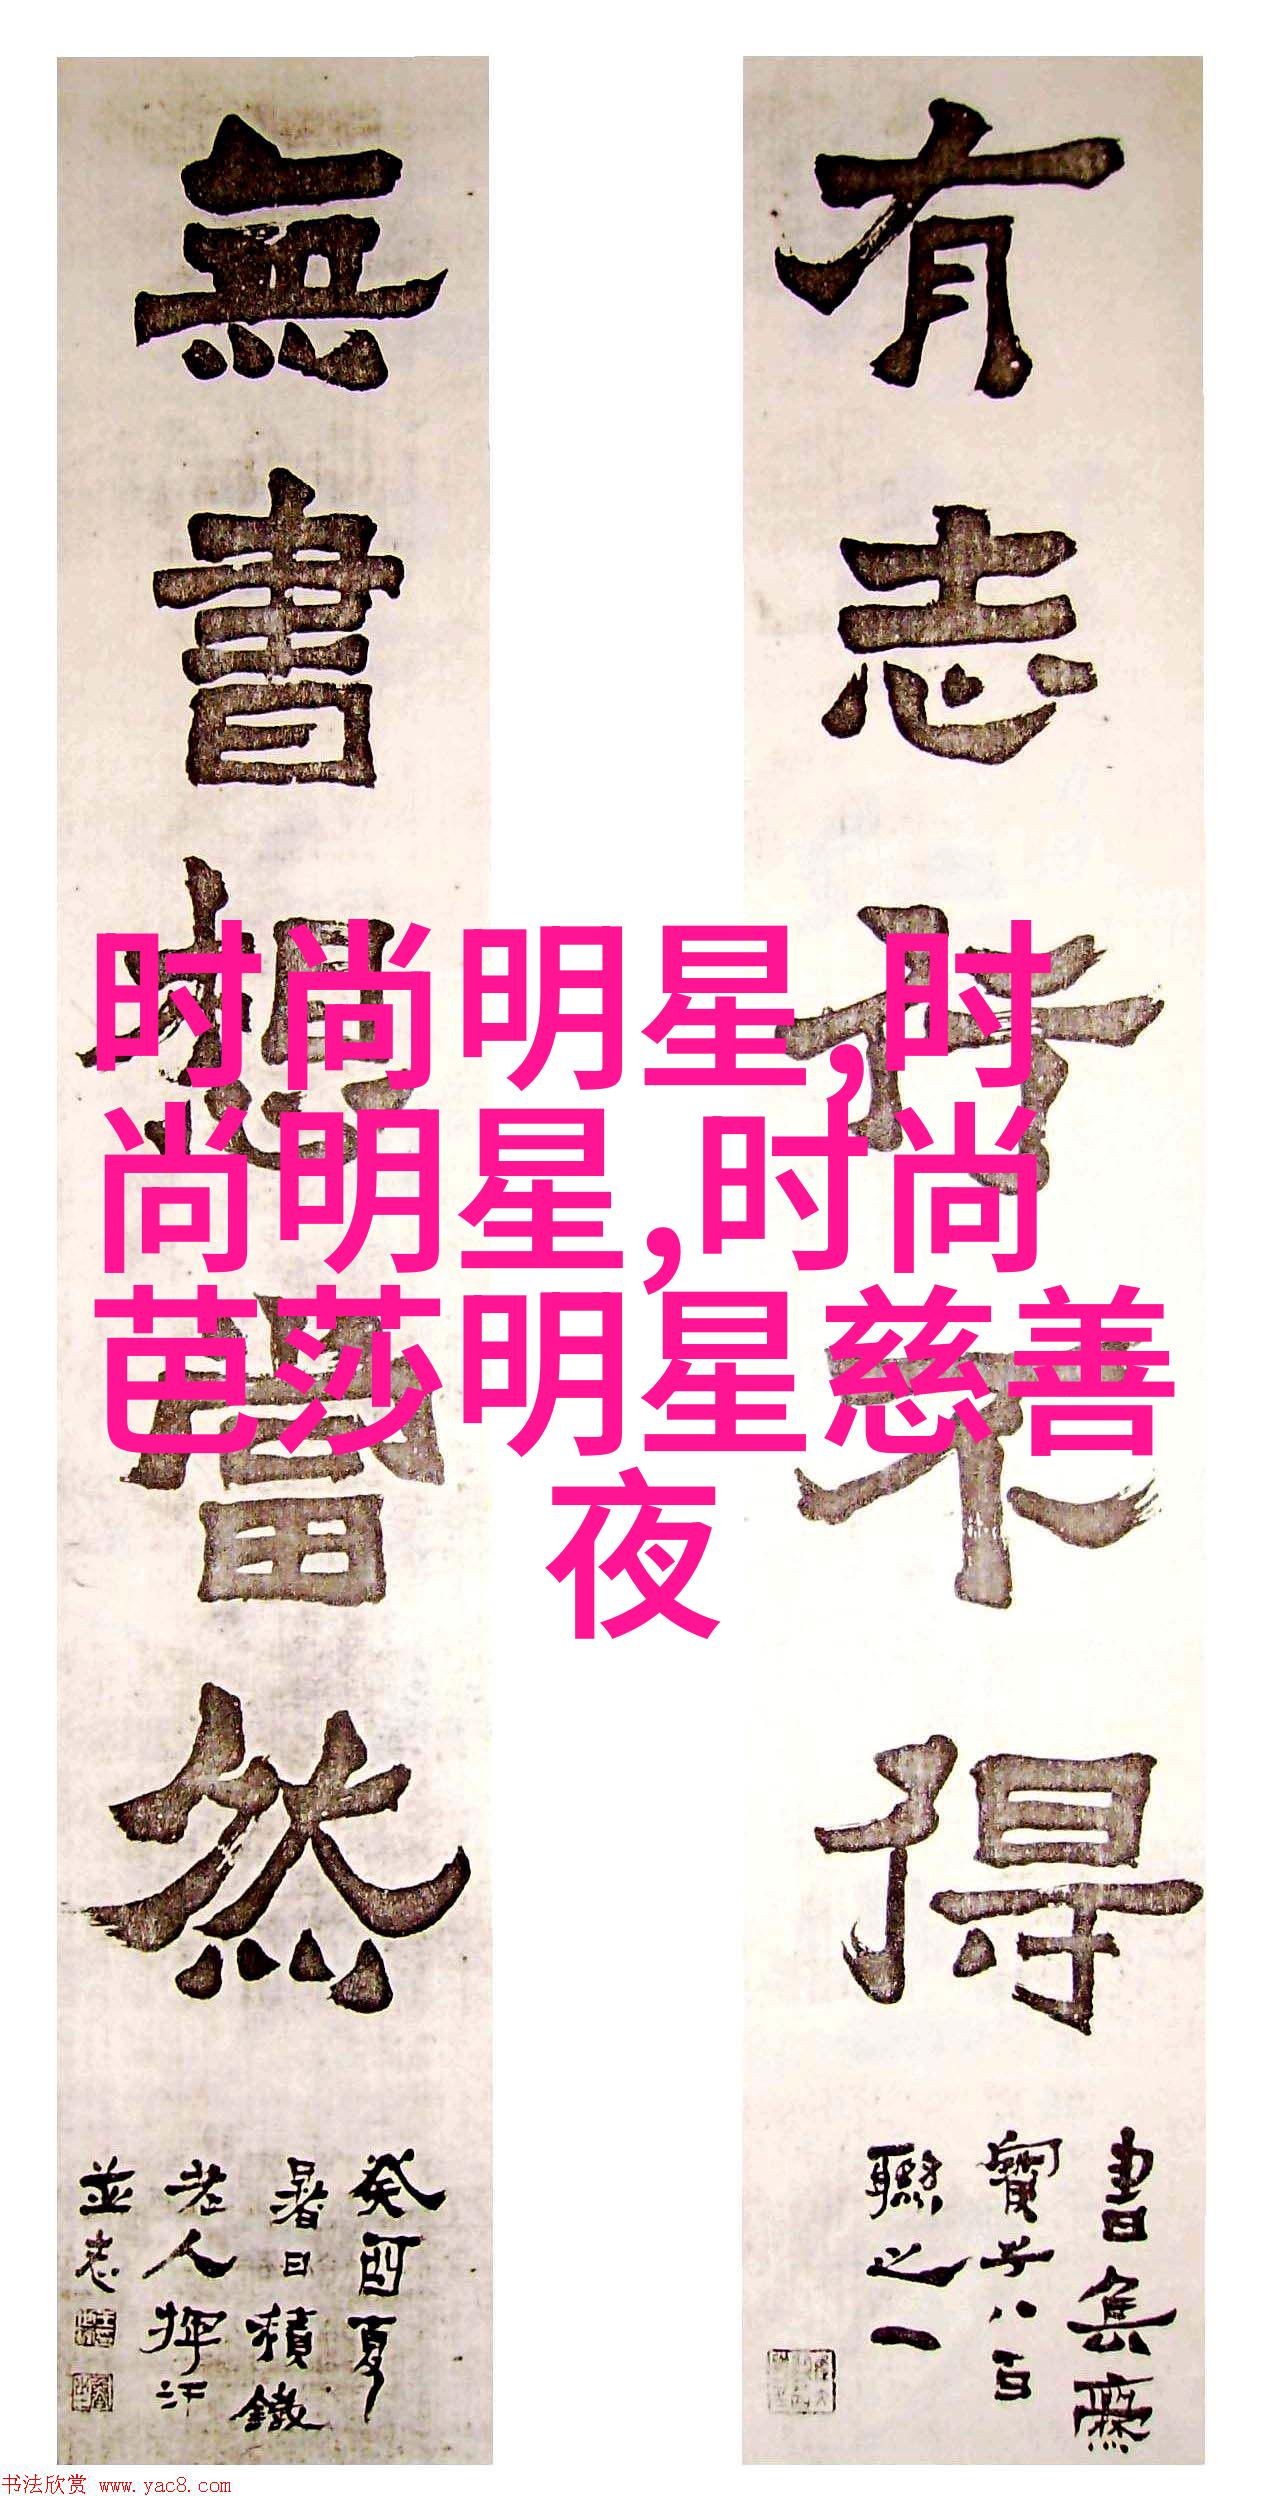 有志行不得
書集爨
寶子八百
聯之一
無書想當然
癸酉夏
暑日積鐵
老人揮汗
並志
时尚明星,时
尚明星,时尚
芭莎明星慈善
夜
书法欣赏 www.yac8.com